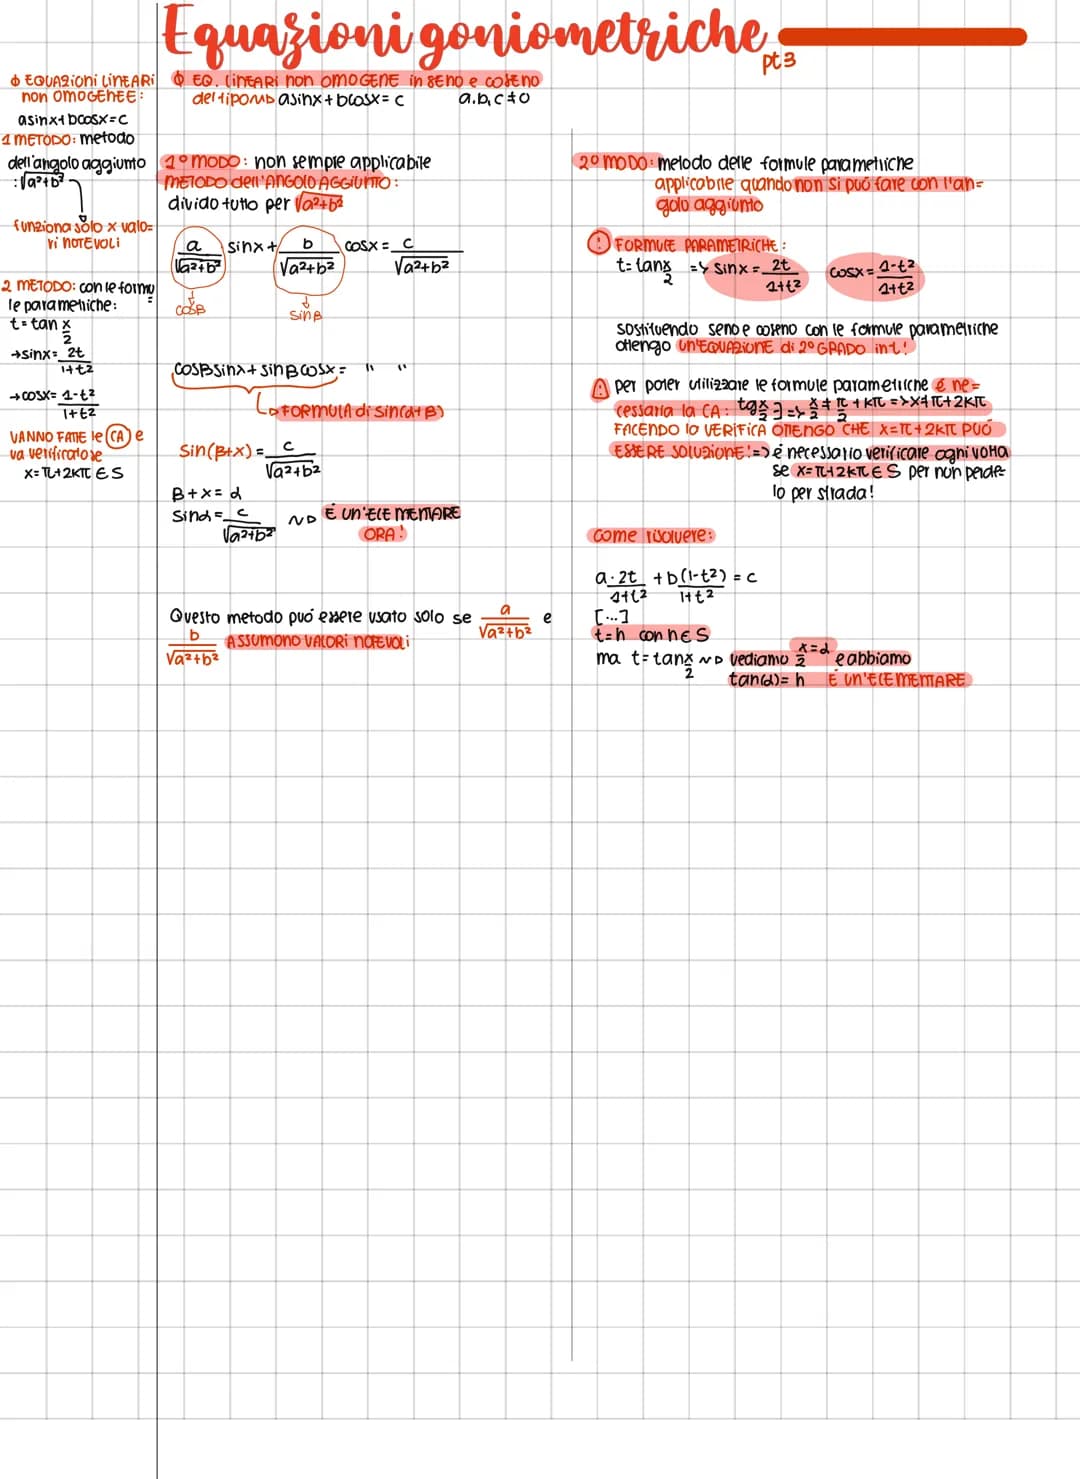 Equazioni goniometriche
pt3
ϕ EQUAZIONI LINEARI
non OMOGENEE:
asinx+bcosx=c
1 METODO: metodo
dell'angolo aggiunto
: √a²+b²
funziona solo x valo=
ri NOTEVOLI
2 METODO: con le formu
le parametriche:
t= tan x/2
→sinx= 2t/1+t²
→cosx= 1-t²/1+t²
VANNO FATTE le (CA) e
va verificato se
x=π+2kπ ∈ S
ϕ EQ. LINEARI non OMOGENE in SENO e COSENO
del tipo asinx+bcosx= c a,b,c≠0
1° MODO: non sempre applicabile
METODO dell'ANGOLO AGGIUNTO:
divido tutto per √a²+b²
a/√a²+b² sinx+ b/√a²+b² cosx= c/√a²+b²
cosβ sinβ
cosβsinx+sinβcosx= " "
FORMULA di sin(α+β)
sin(β+x)= c/√a²+b²
β+x= α
sinα= c/√a²+b² É UN'ELEMENTARE
ORA!
Questo metodo puó essere usato solo se a/√a²+b² e
b/√a²+b² ASSUMONO VALORI NOTEVOLI
2° MODO: metodo delle formule parametriche
applicabile quando non si puó fare con l'an=
golo aggiunto
! FORMULE PARAMETRICHE:
t= tan x/2 => sinx= 2t/1+t² cosx= 1-t²/1+t²
sostituendo seno e coseno con le formule parametriche
ottengo UN'EQUAZIONE di 2° GRADO in t!
⚠ per poter utilizzare le formule parametriche é ne=
cessaria la CA: tg x/2 ∃ => x/2 ≠ π/2 + kπ => x≠π+2kπ
FACENDO la VERIFICA OTTENGO CHE x=π+2kπ PUÓ
ESSERE SOLUZIONE!=> é necessario verificare ogni volta
se x=π+2kπ ∈ S per non perder=
lo per strada!
come risolvere:
a· 2t/1+t² + b(1-t²)/1+t² = c
[...]
t=h con h∈S
ma t= tan x/2 vediamo x/2=α e abbiamo
tan(α)= h É UN'ELEMENTARE